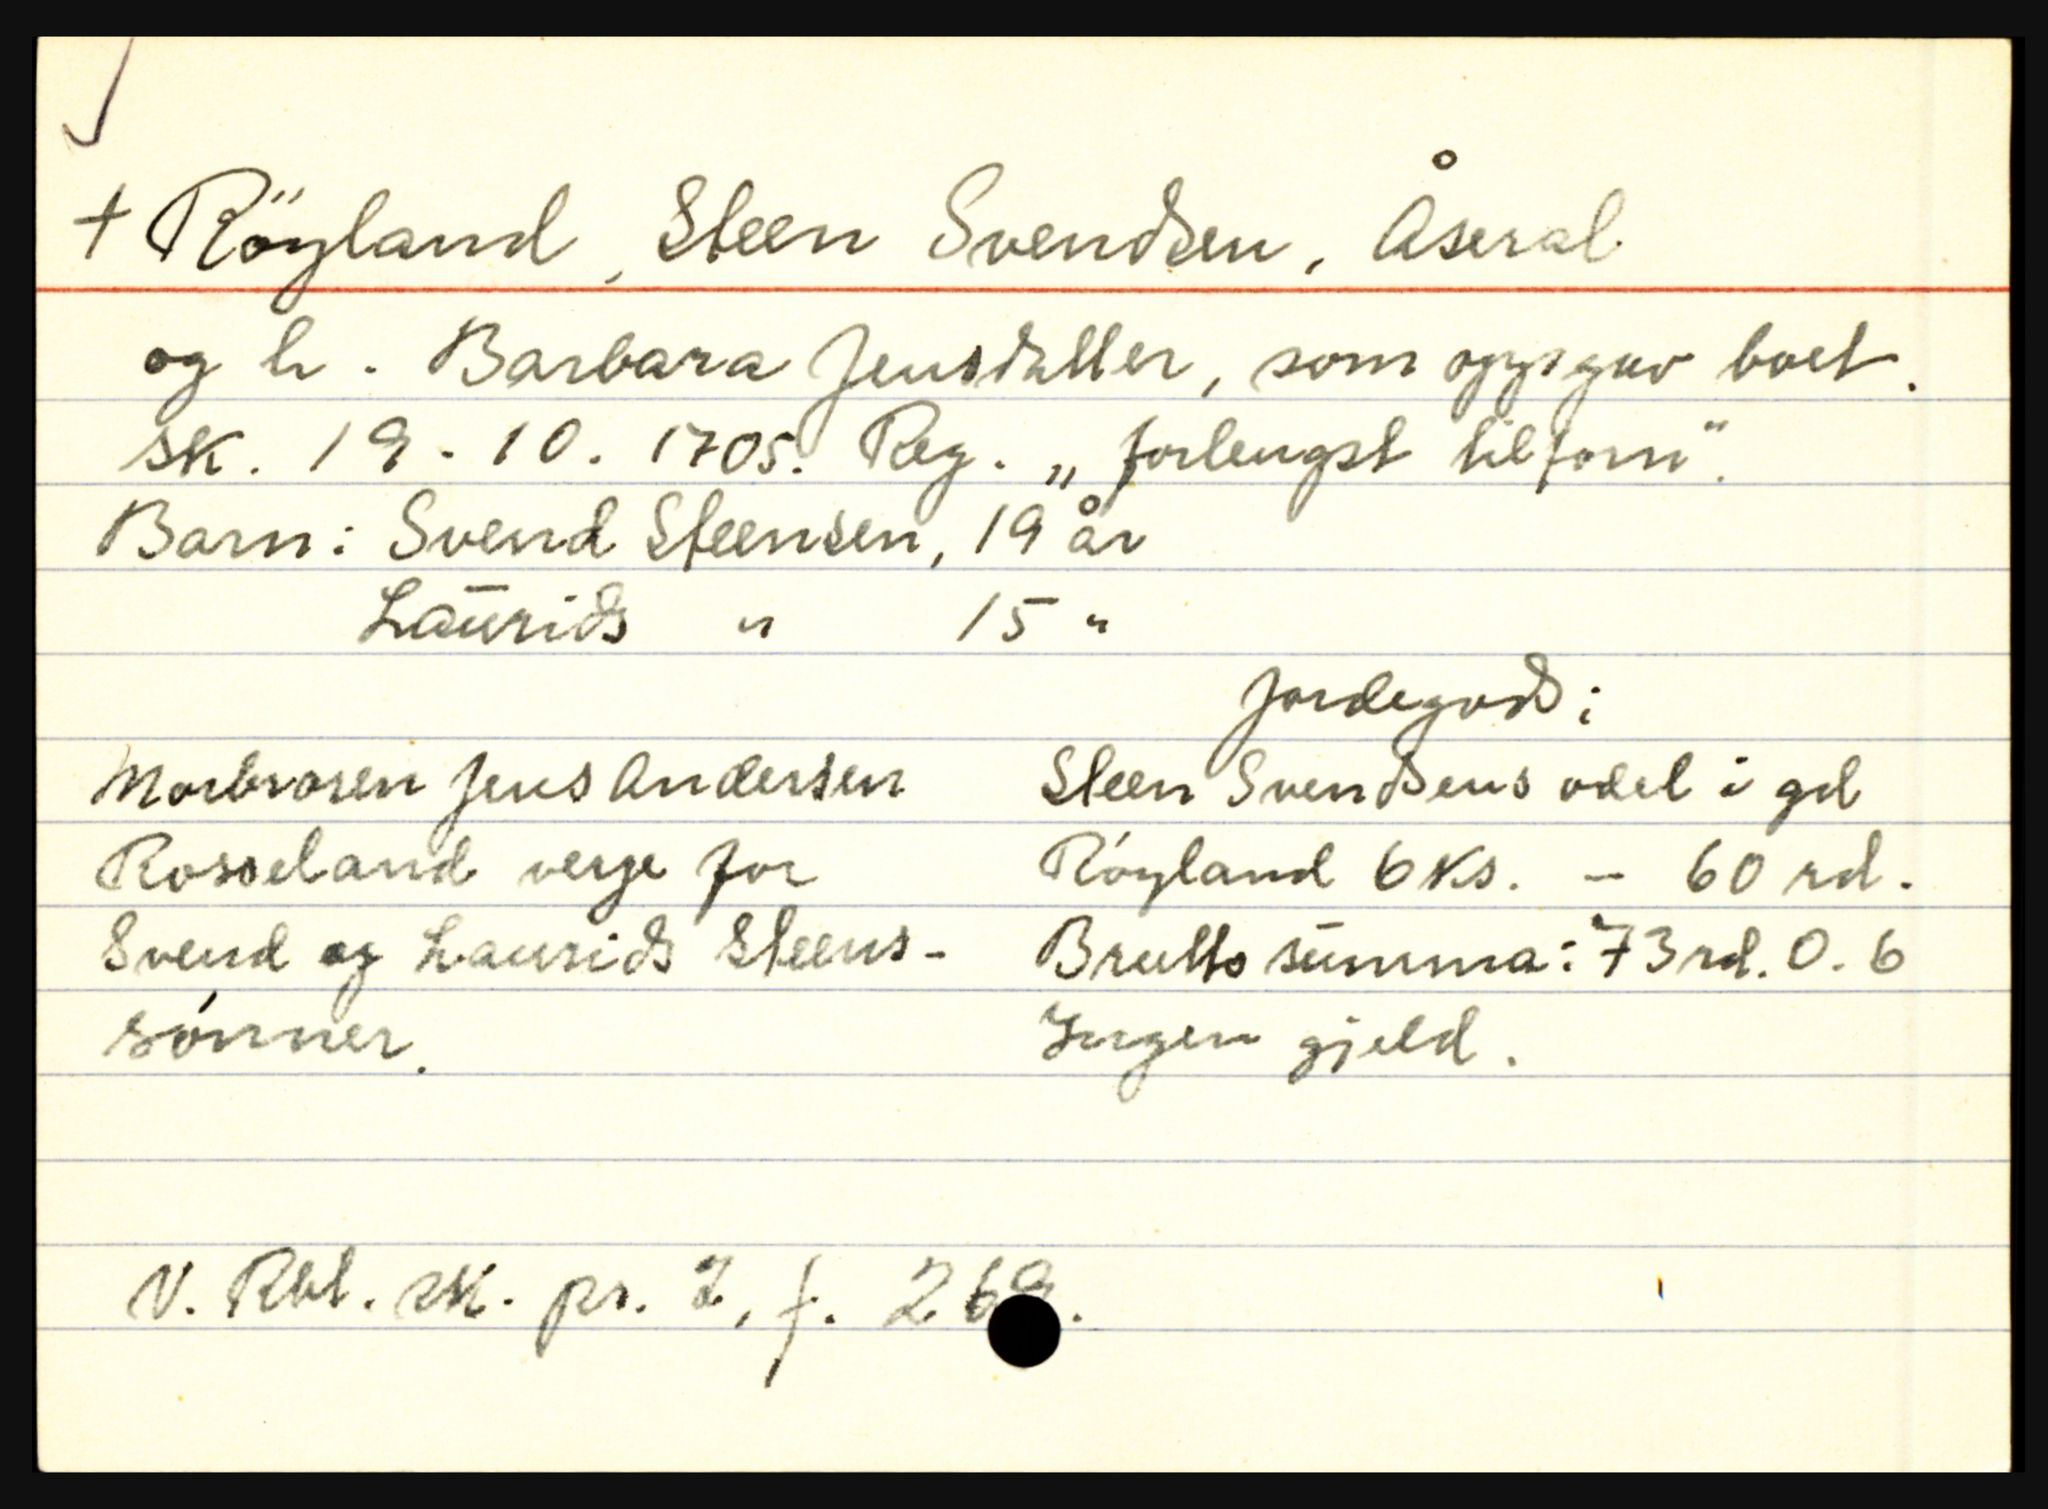 + Röyland, Steen Svendsen, Åseral
og h. Barbara Jensdatter, som oppgav boet.
sk. 19-10. 1705. Reg. „forlengst tilforn".
Barn: Svend Steensen, 19 år
Laurids " 15 "
Jordegods:
Morbroren Jens Andersen
Rosseland verge for
Svend og Laurids Steens-
sönner.
Steen Svendsens odel i gd
Röyland 6 ks. - 60 rd.
Brutto summa: 73 rd. 0. 6
Ingen gjeld.
V. Rbl. sk. pr. 2, f. 269.